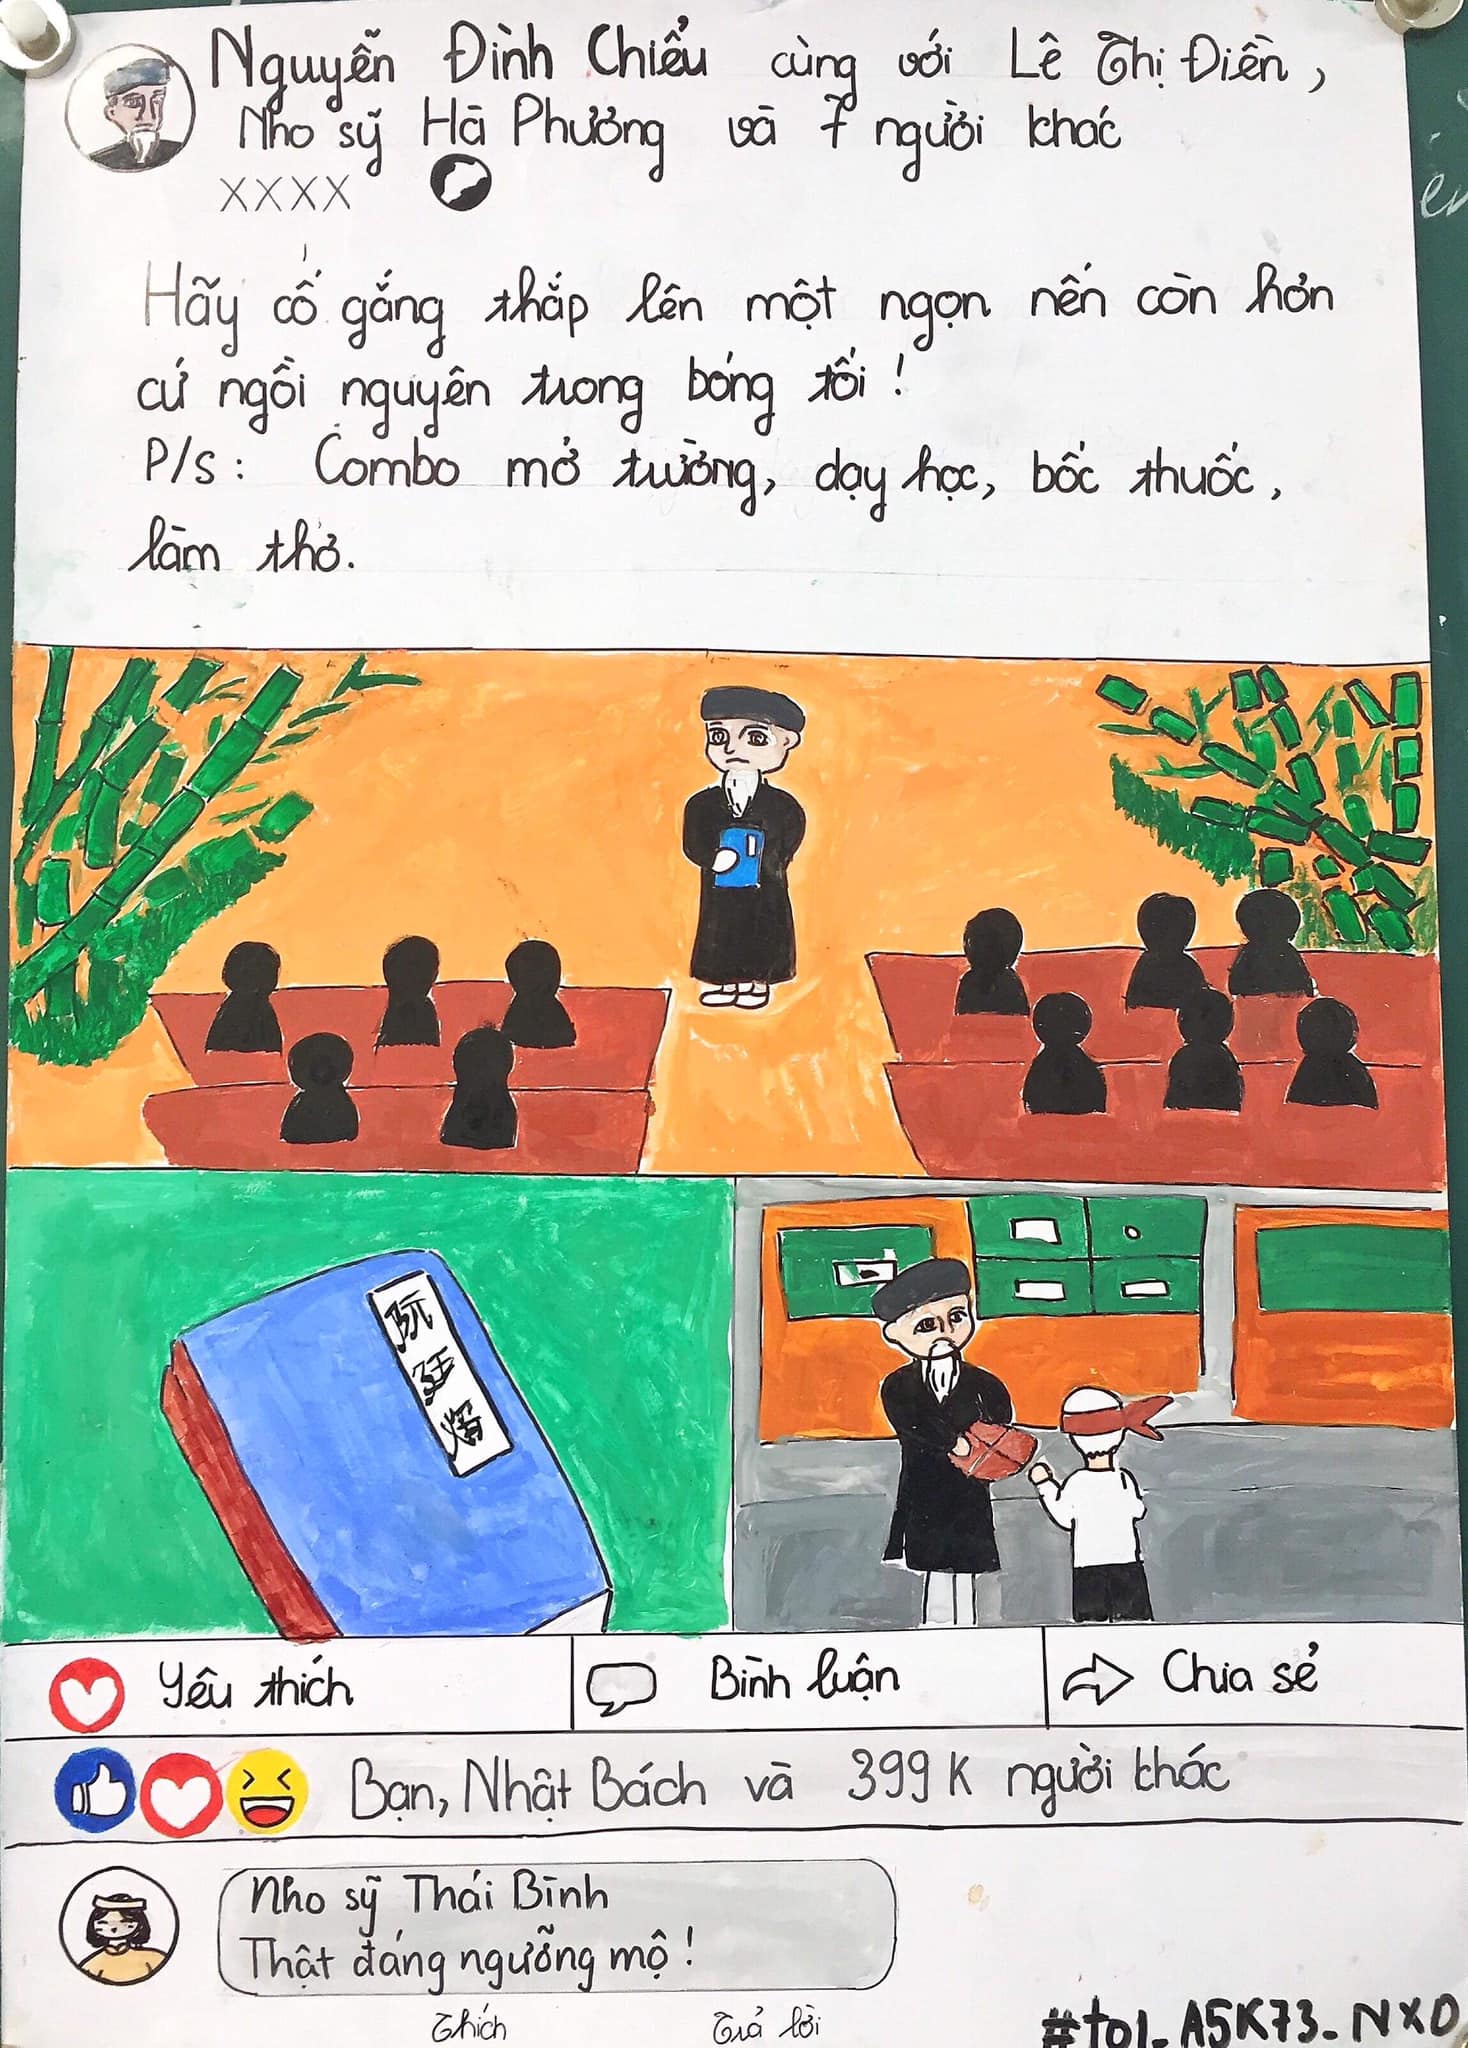 Nguyễn Đình Chiểu cùng với Lê Thị Điền,
Nho sỹ Hà Phương và 7 người khác
XXXX
Hãy cố gắng thắp lên một ngọn nến còn hơn
cứ ngồi nguyên trong bóng tối !
P/s : Combo mở trường, dạy học, bốc thuốc,
làm thơ.
阮
廷
Yêu thích
Bình luận
Chia sẻ
Bạn, Nhật Bách và 399K người khác
Nho sỹ Thái Bình
Thật đáng ngưỡng mộ !
Thích
Trả lời
#tol_A5K73_NXO